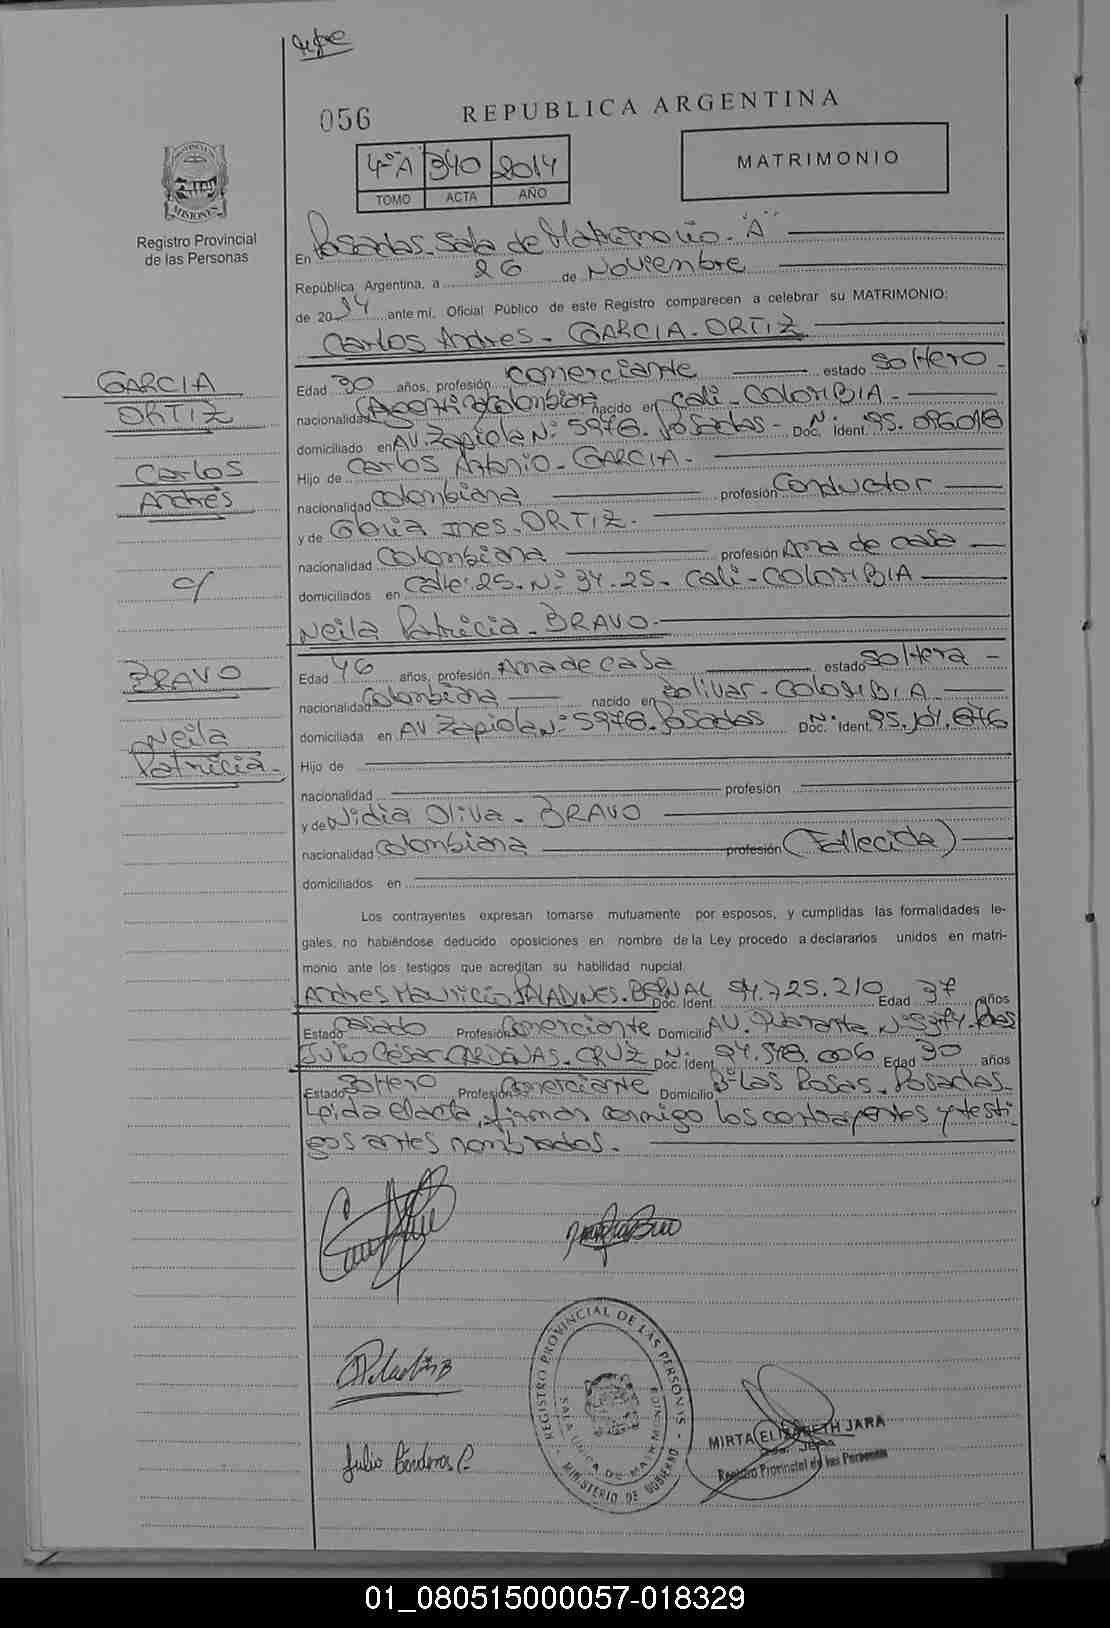 056
REPUBLICA ARGENTINA
4º"A" 340 2014
TOMO ACTA AÑO
MATRIMONIO
MISIONES
Registro Provincial
de las Personas
En Posadas. Sala de Matrimonio. "A"
República Argentina, a 26 de Noviembre
de 2014 ante mi, Oficial Público de este Registro comparecen a celebrar su MATRIMONIO:
Carlos Andres - GARCIA - ORTIZ
GARCIA
ORTIZ
Carlos
Andrés
c/
BRAVO
Neila
Patricia.-
Edad 30 años, profesión comerciante estado soltero -
nacionalidad colombiana nacido en Cali - COLOMBIA -
domiciliado en AV. Zapiola Nº 5978. Posadas - Nº Doc. Ident. 95. 096018
Hijo de Carlos Antonio - GARCIA -
nacionalidad colombiana profesión Conductor
y de Gloria Ines - ORTIZ -
nacionalidad colombiana profesión Ama de casa
domiciliados en Calle: 25 - Nº 34 - 25 - Cali - COLOMBIA
Neila Patricia - BRAVO -
Edad 46 años, profesión Ama de casa estado soltera -
nacionalidad colombiana nacido en Bolivar - COLOMBIA
domiciliada en AV Zapiola Nº 5978. Posadas Nº Doc. Ident. 95.101.676
Hijo de
nacionalidad profesión
y de Nidia Oliva - BRAVO
nacionalidad colombiana profesión (Fallecida)
domiciliados en
Los contrayentes expresan tomarse mutuamente por esposos, y cumplidas las formalidades le-
gales, no habiéndose deducido oposiciones en nombre de la Ley procedo a declararlos unidos en matri-
monio ante los testigos que acreditan su habilidad nupcial
Andres Mauricio PALADINES - BERNAL Doc. Ident. 94.725.210 Edad 37 años
Estado casado Profesión Comerciante Domicilio AV. Nº 5374. Pdas
Julio César CARDENAS - CRUZ Nº Doc. Ident 94.598.006 Edad 30 años
Estado Soltero Profesión Comerciante Domicilio Bº Las Rosas. Posadas.
Leida el acta, firman conmigo los contrayentes y testi
gos antes nombrados.
Julio Cardenas C.
REGISTRO PROVINCIAL DE LAS PERSONAS - MINISTERIO DE GOBIERNO
SALA UNICA DE MATRIMONIOS
MIRTA ELIZABETH JARA
Registro Provincial de las Personas
01_080515000057-018329